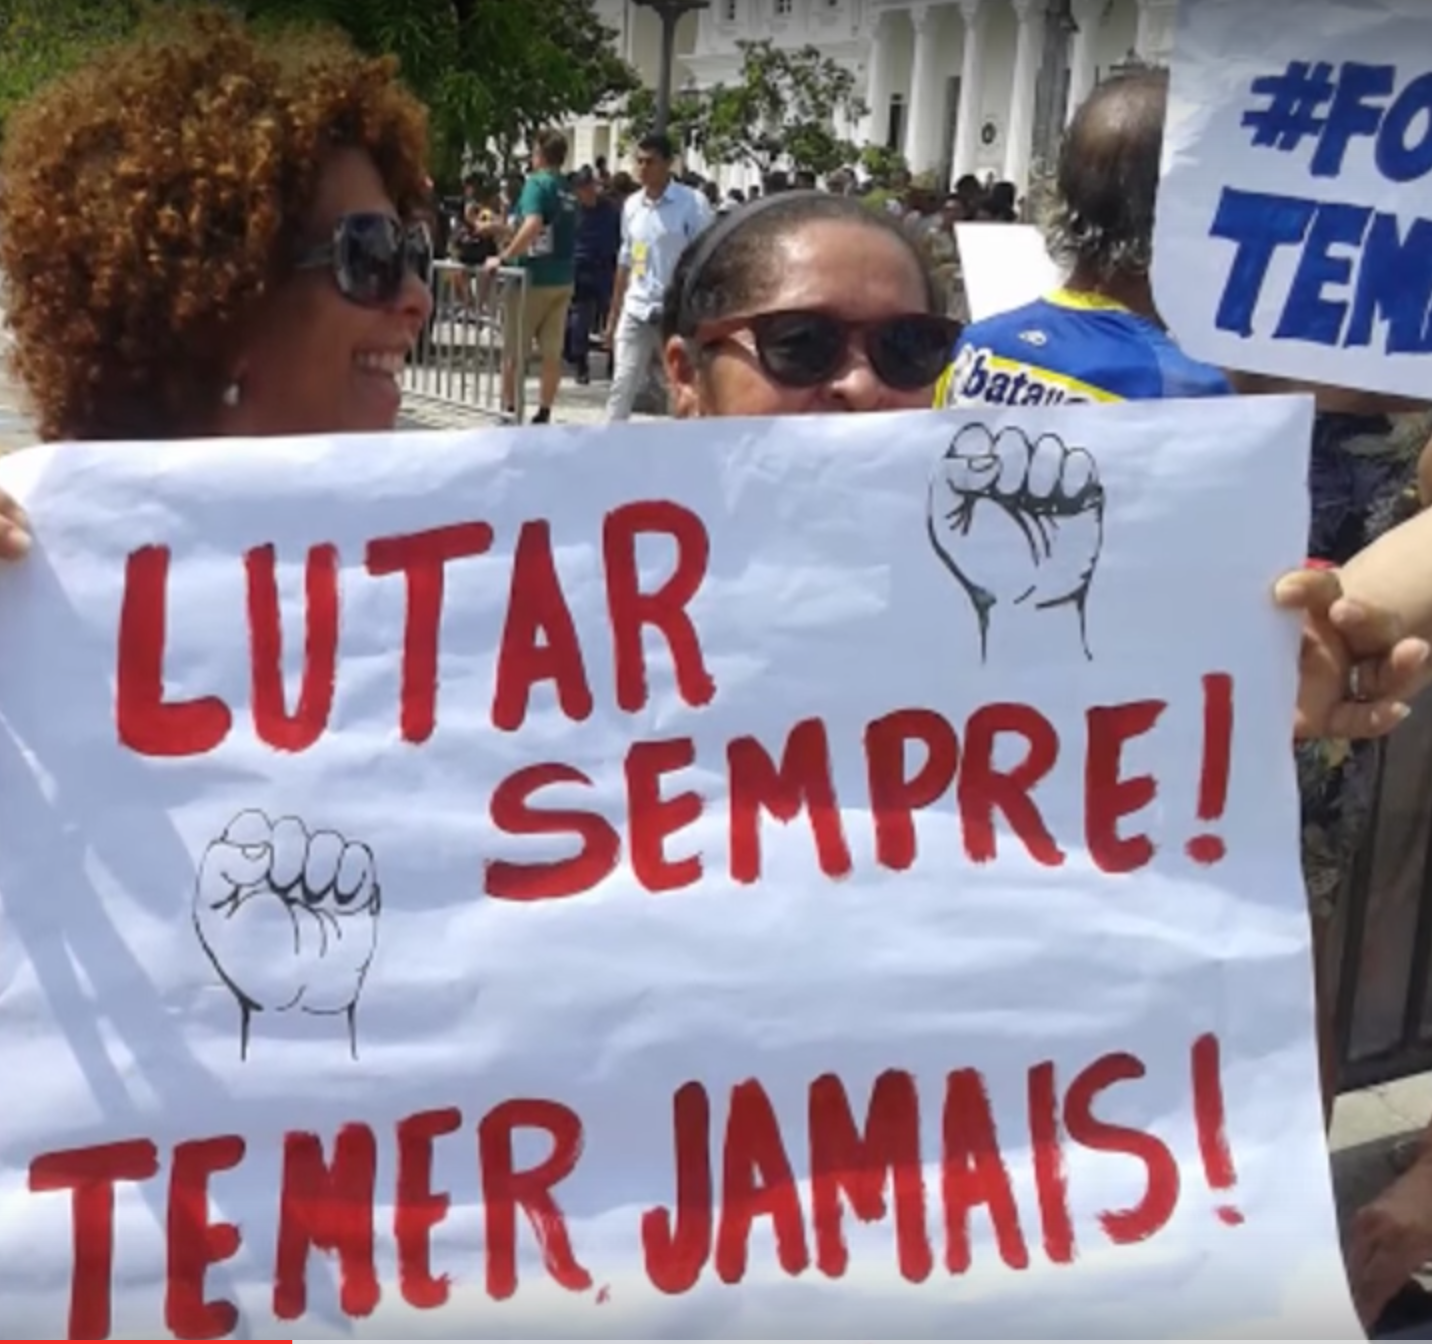 #FO
TEM
LUTAR
SEMPRE!
TEMER JAMAIS!